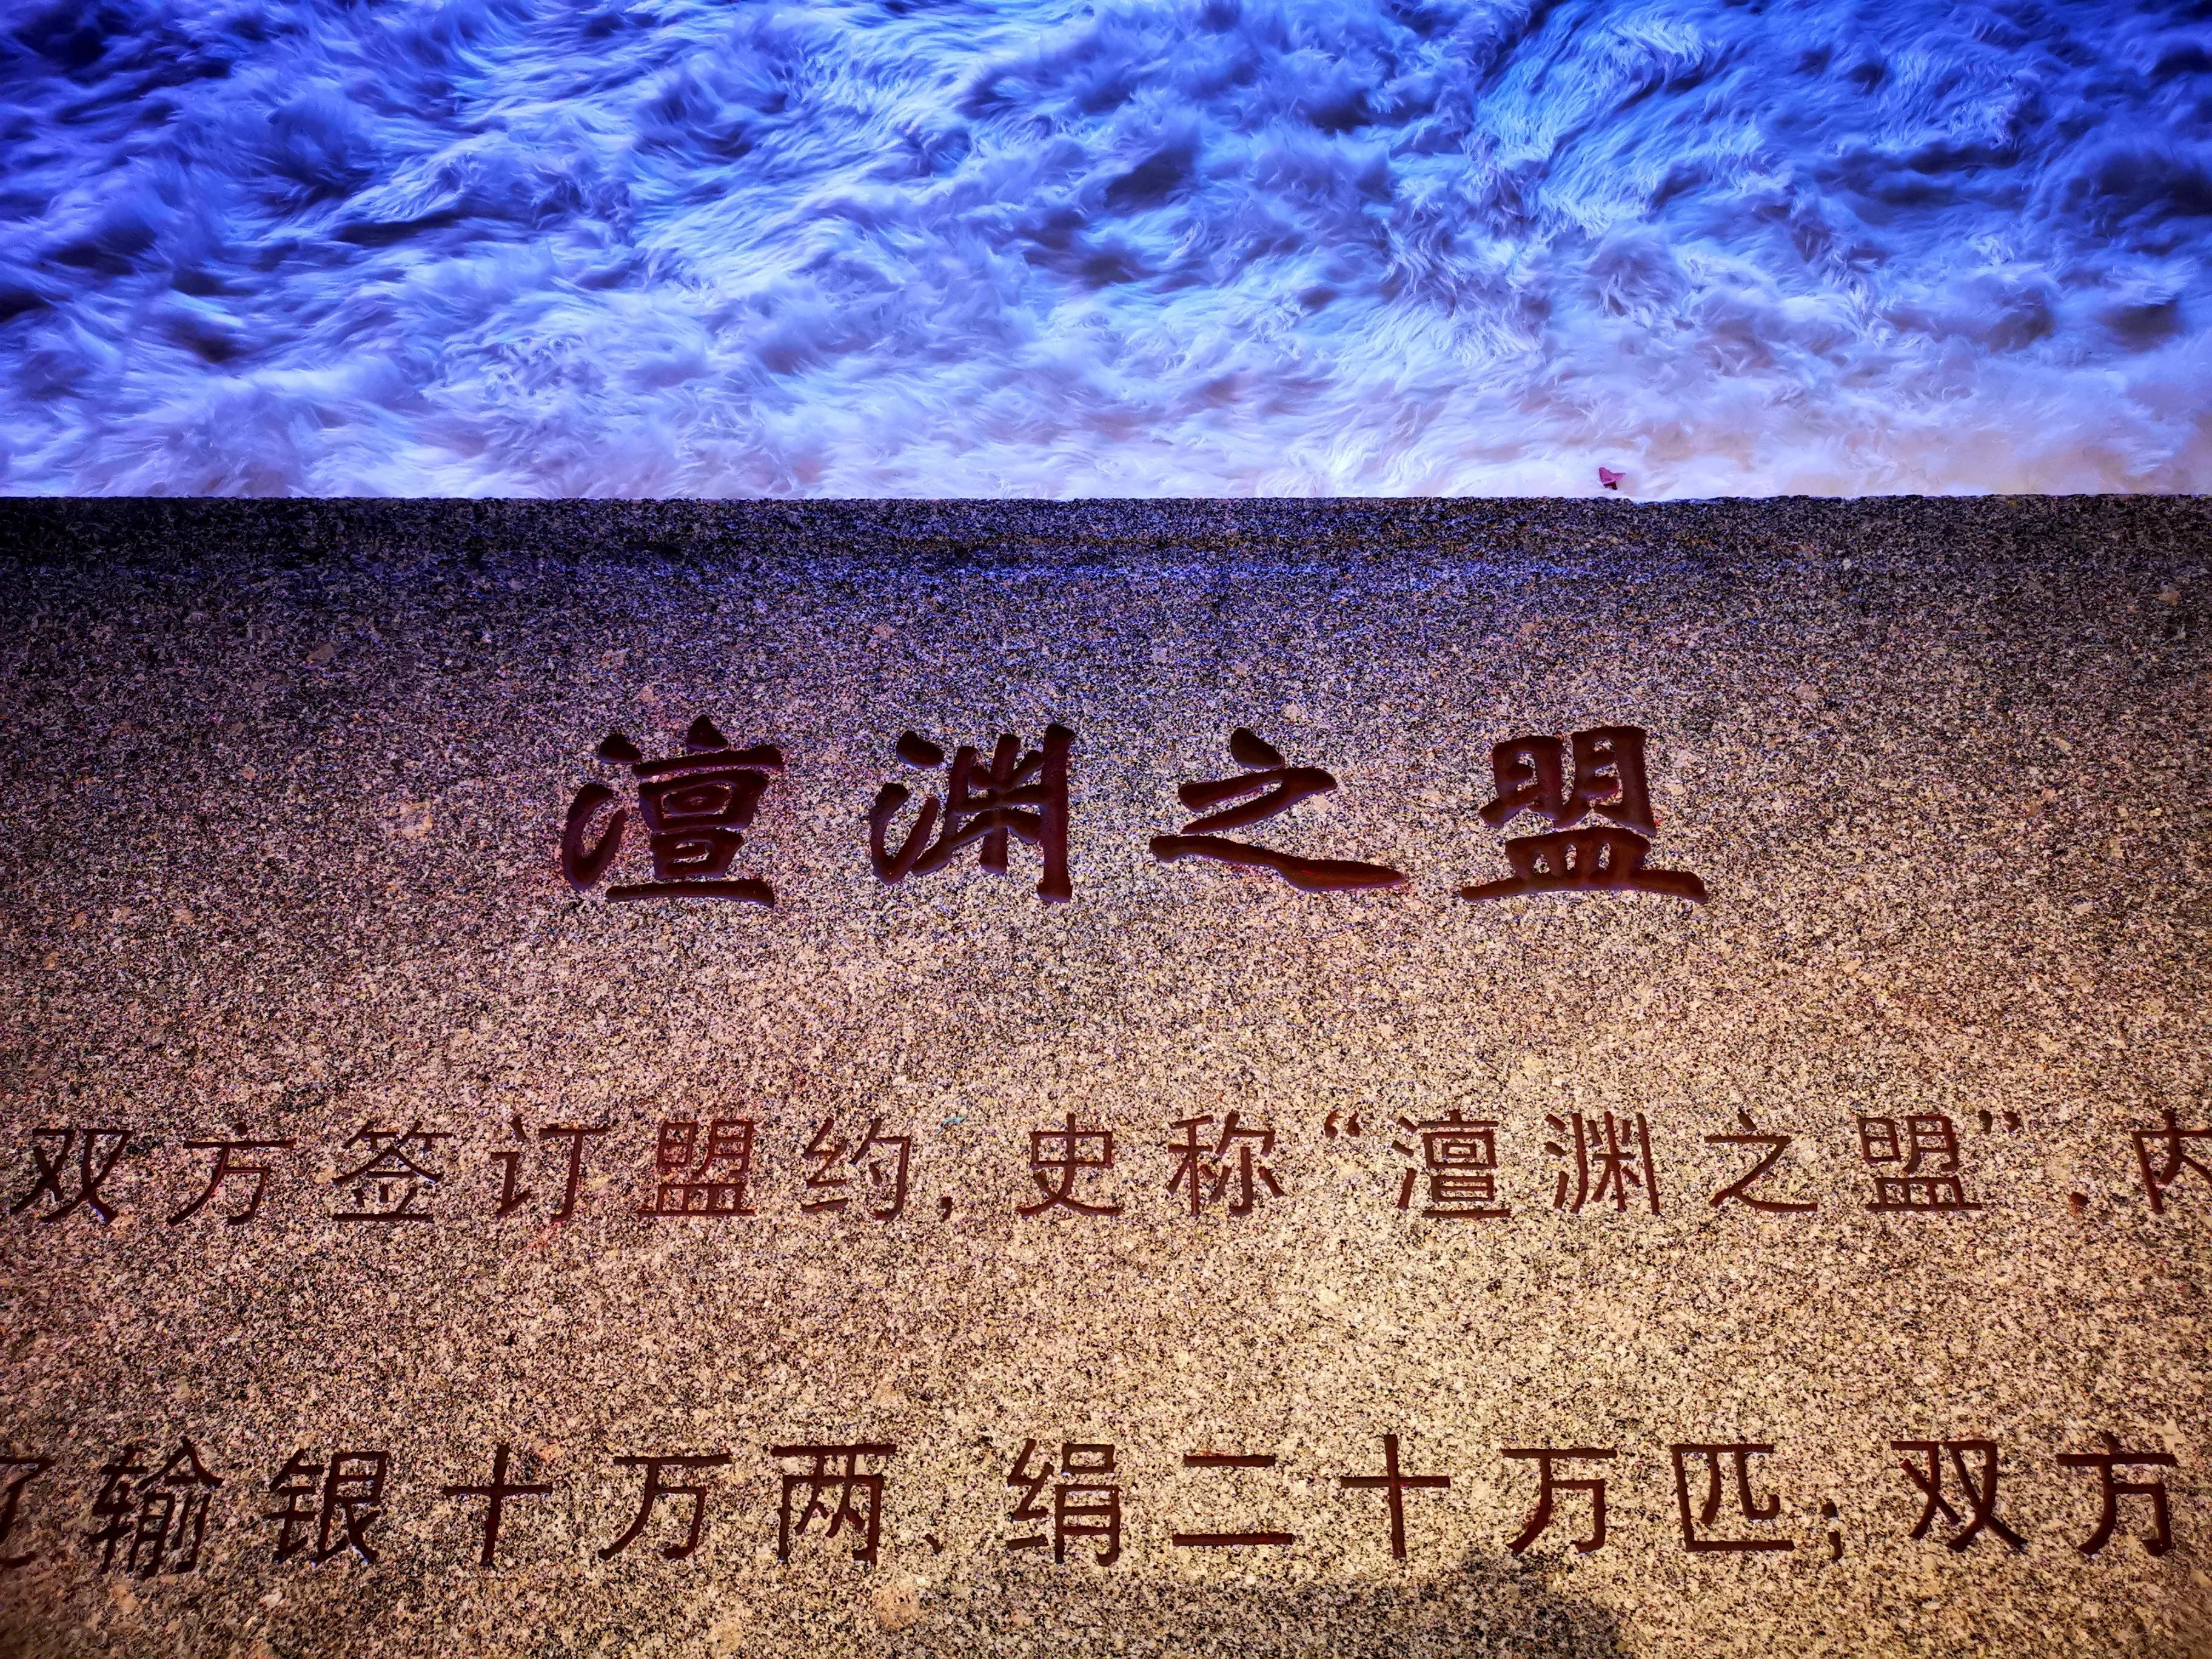 澶渊之盟
双方签订盟约,史称“澶渊之盟”.内
辽输银十万两、绢二十万匹;双方